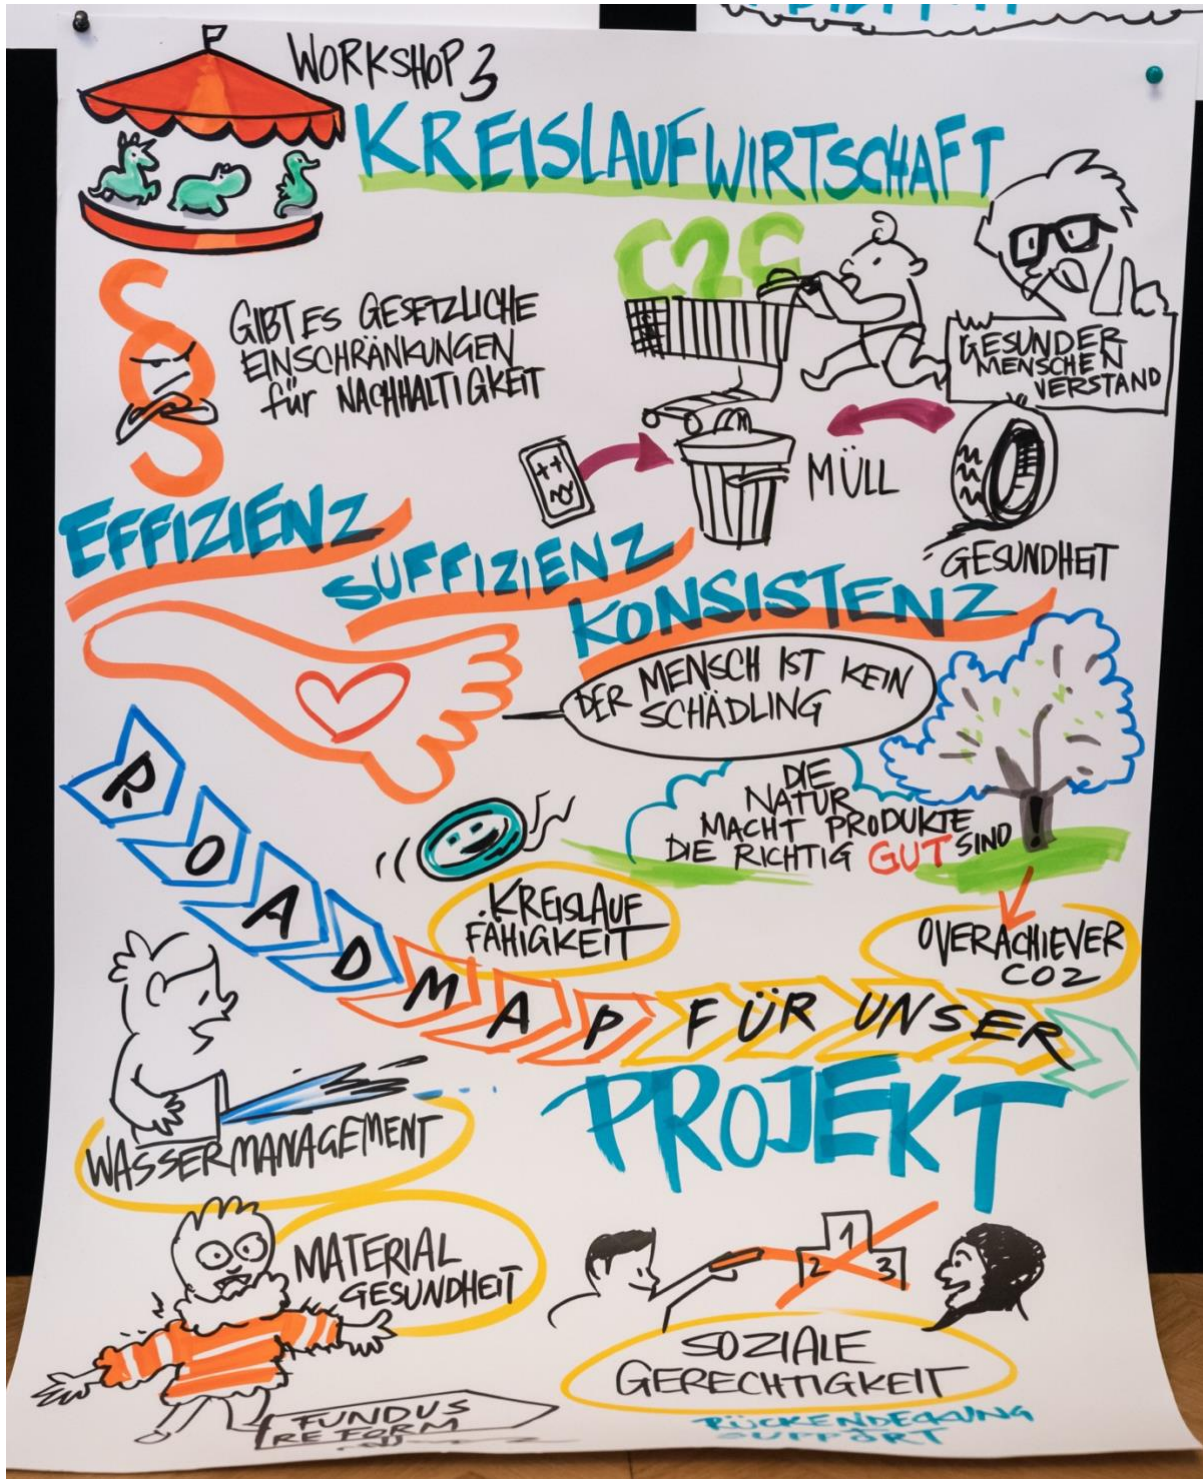 WORKSHOP 3
KREISLAUFWIRTSCHAFT
C2C
GIBT ES GESETZLICHE
EINSCHRÄNKUNGEN
für NACHHALTIGKEIT
GESUNDER
MENSCHEN
VERSTAND
MÜLL
GESUNDHEIT
EFFIZIENZ
SUFFIZIENZ
KONSISTENZ
DER MENSCH IST KEIN
SCHÄDLING
DIE
NATUR
MACHT PRODUKTE
DIE RICHTIG GUT SIND
KREISLAUF
FÄHIGKEIT
OVERACHIEVER
CO2
ROADMAP FÜR UNSER
PROJEKT
WASSERMANAGEMENT
MATERIAL
GESUNDHEIT
1
2 3
SOZIALE
GERECHTIGKEIT
RÜCKENDECKUNG
SUPPORT
FUNDUS
REFORM